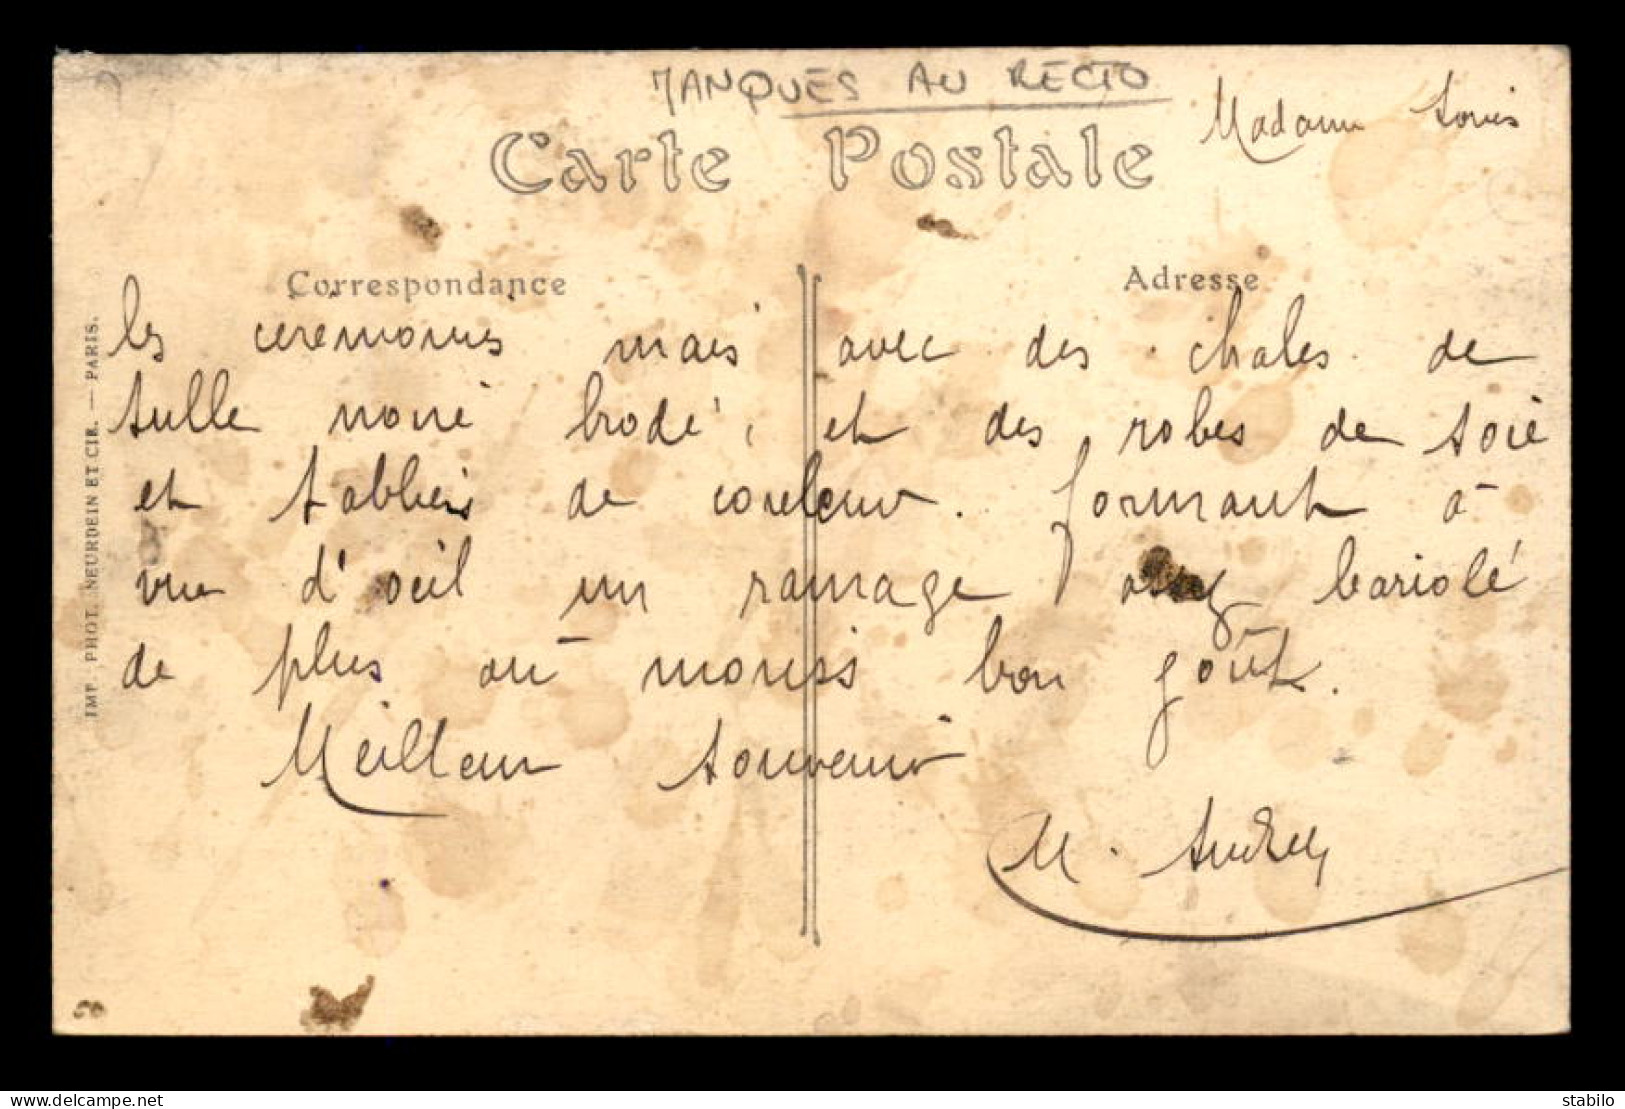 MANQUES AU RECTO
Madame Louis
Carte Postale
Correspondance
Adresse
les cérémonies mais avec des chales de
tulle noire brodé, et des robes de soie
et tabliers de couleur. formant à
vue d'oeil un ramage assez bariolé
de plus ou moins bon goût.
Meilleur souvenir
M.
IMP. PHOT. NEURDEIN ET CIE. — PARIS.
50
delcampe.net
stabilo